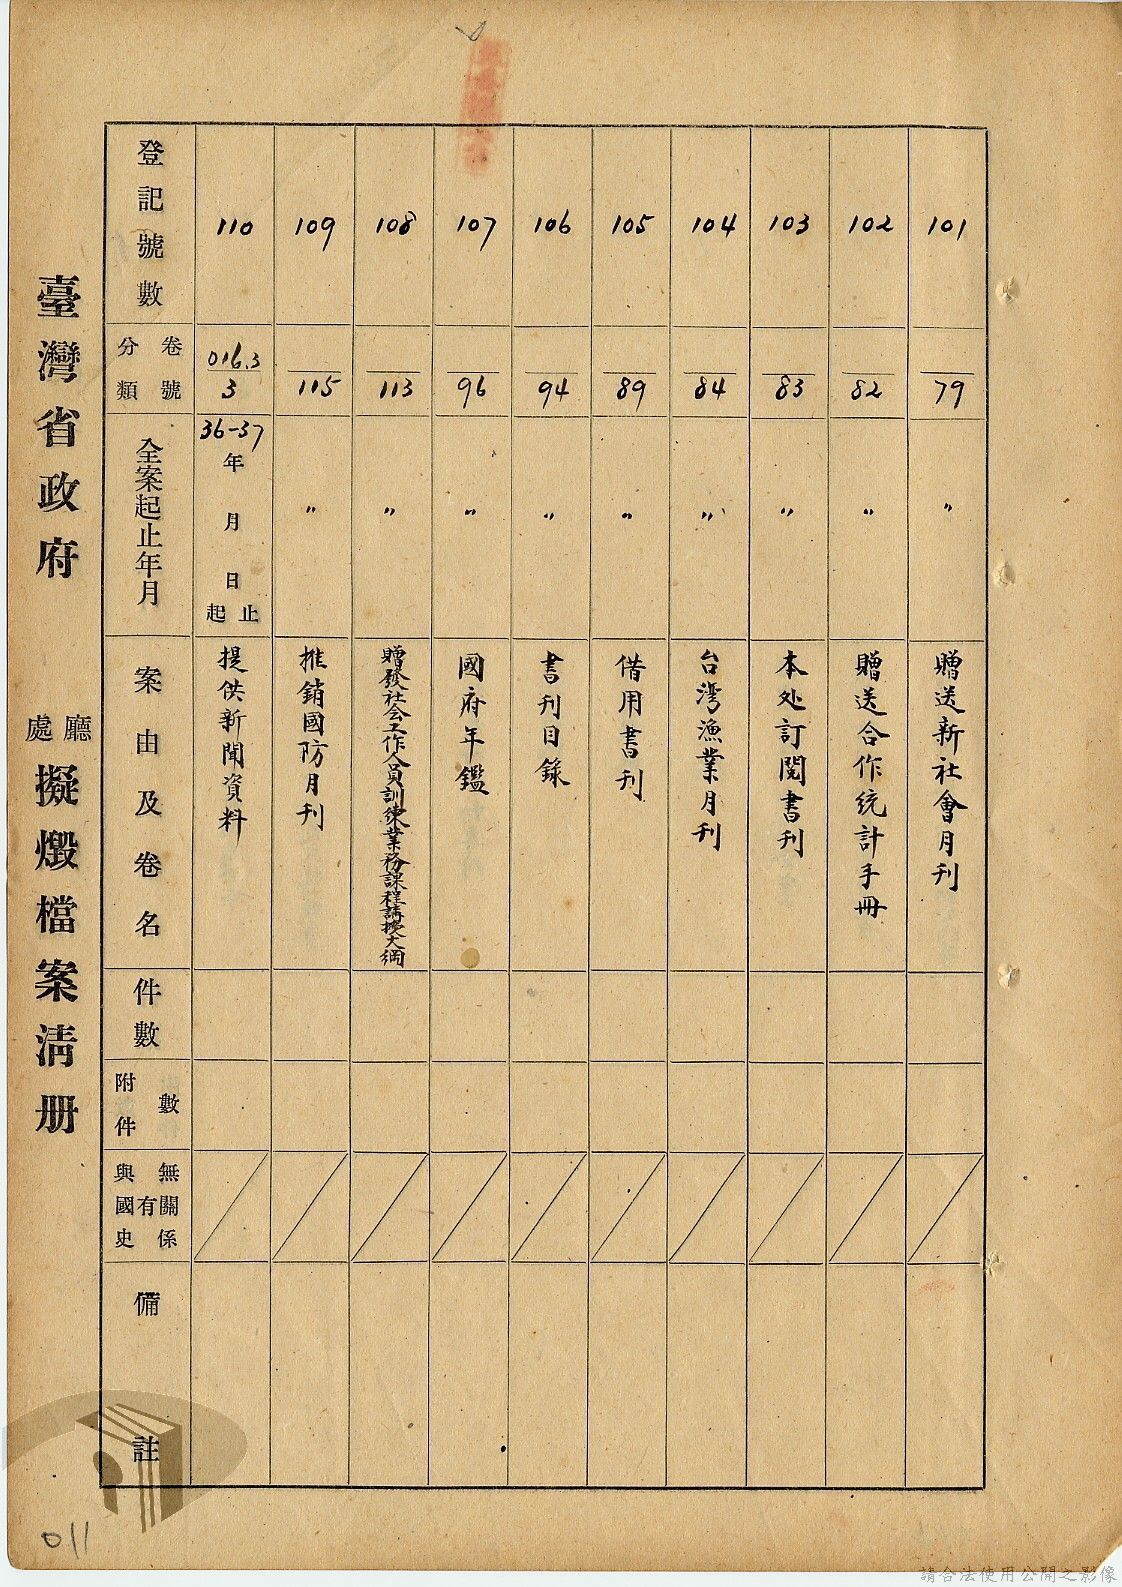 臺灣省政府 廳處 擬燬檔案清册
登記號數 110 109 108 107 106 105 104 103 102 101
分類 卷號 016.3/3 115 113 96 94 89 84 83 82 79
全案起止年月 36-37年 月 日 起 止 〃 〃 〃 〃 〃 〃 〃 〃 〃
案由及卷名
提供新聞資料
推銷國防月刊
贈發社会工作人員訓練業務課程講授大綱
國府年鑑
書刊目錄
借用書刊
台灣漁業月刊
本处訂閱書刊
贈送合作統計手冊
贈送新社會月刊
件數
附件數
與國史有無關係
備註
011
請合法使用公開之影像